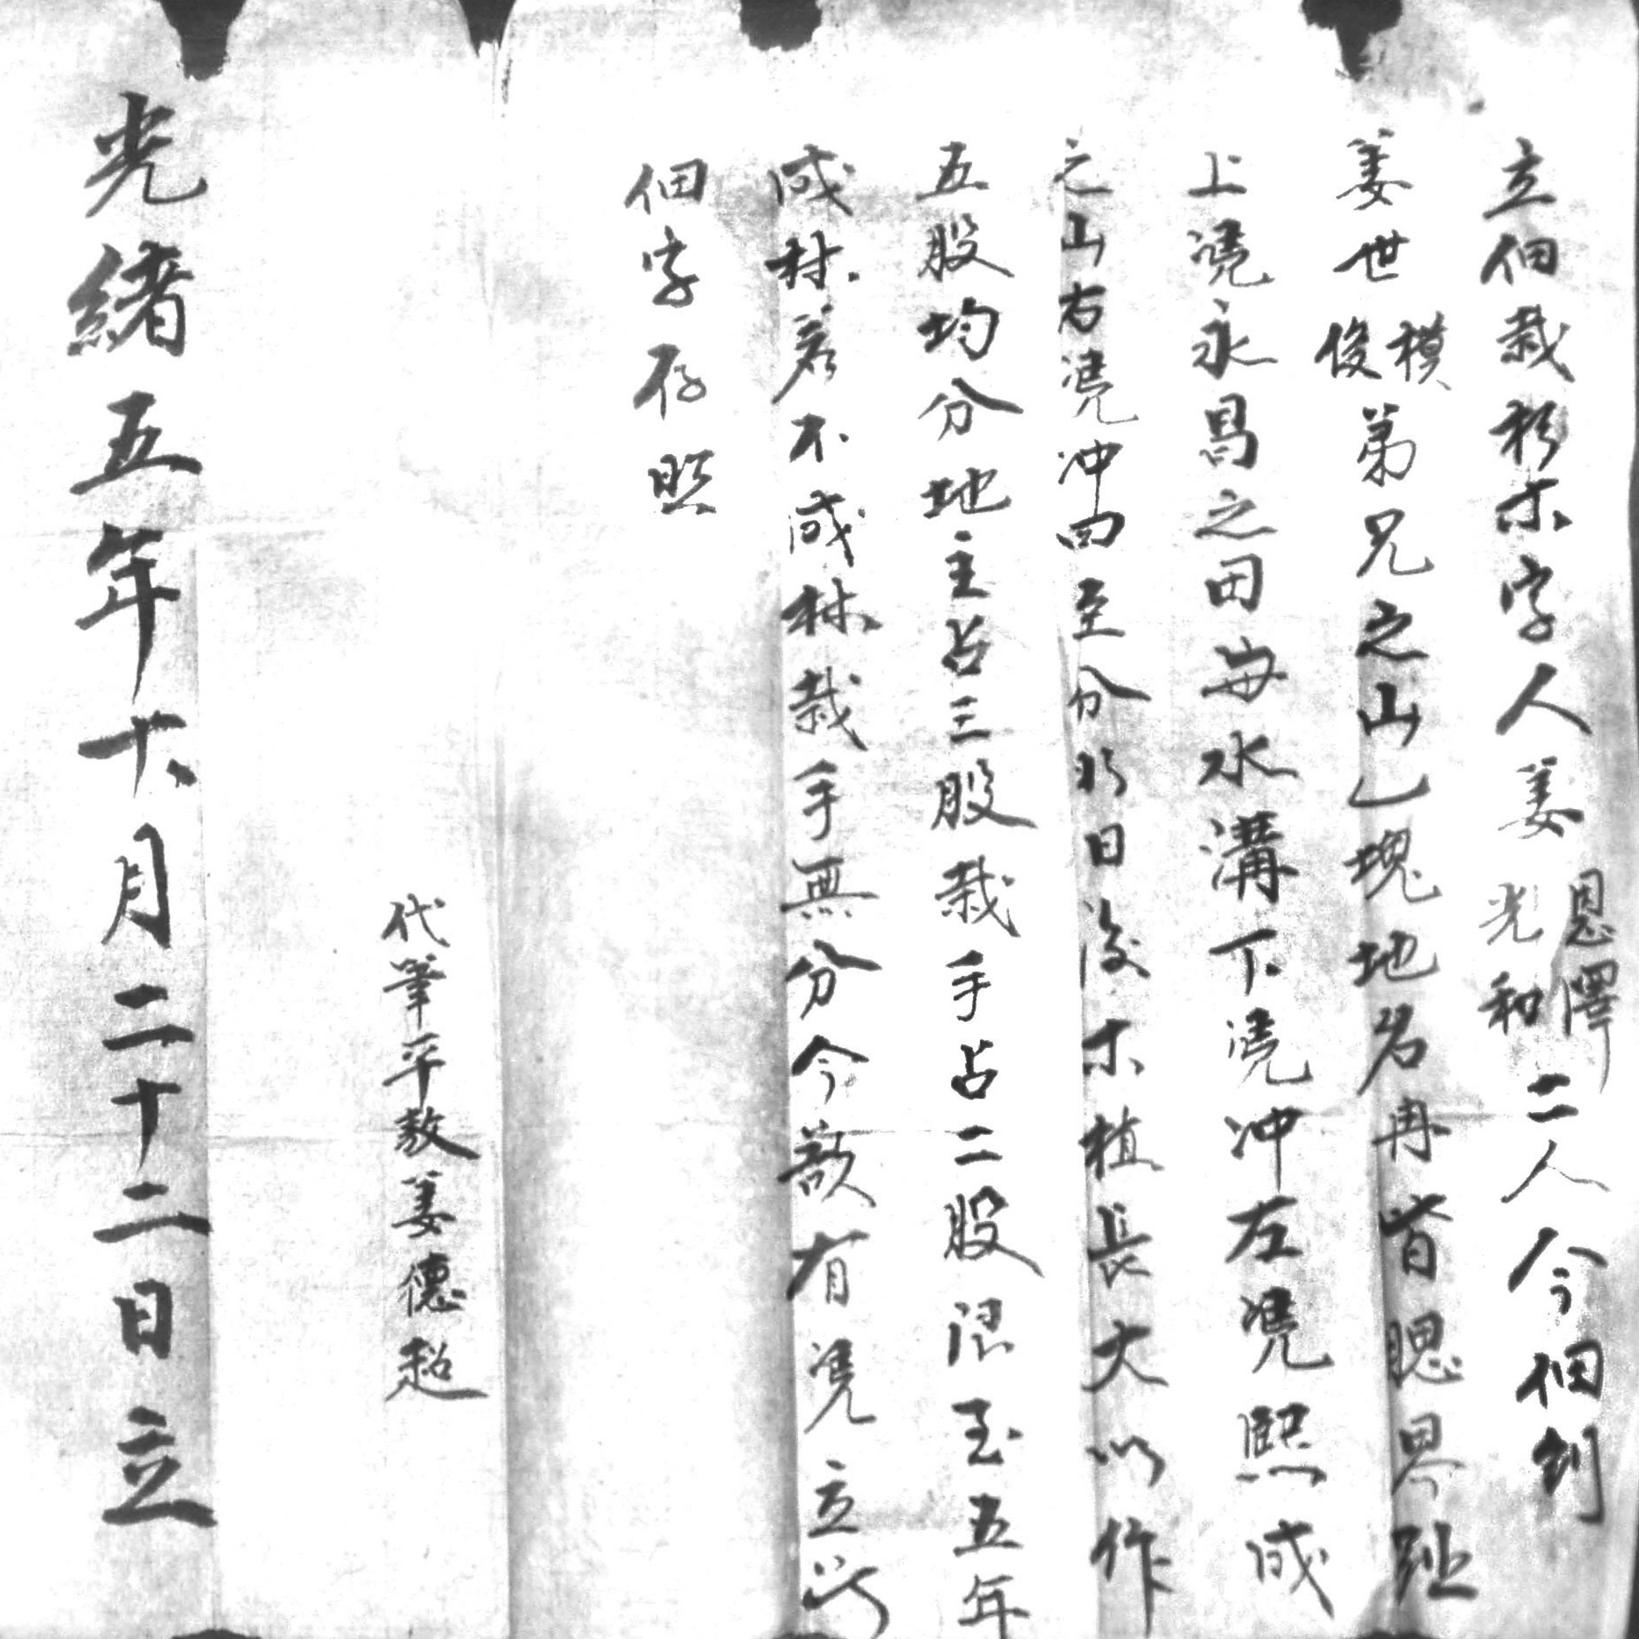 立佃栽杉木字人姜恩澤光和二人今佃到
姜世模俊弟兄之山乚塊地名冉首腮界趾
上凴永昌之田安水溝下凴冲左凴熙成
之山右凴冲四至分形日後木植長大以作
五股均分地主占三股栽手占二股限至五年
成林若不成林栽手無分今欲有凴立此
佃字存照
代筆平敖姜德超
光緒五年十八月二十二日立